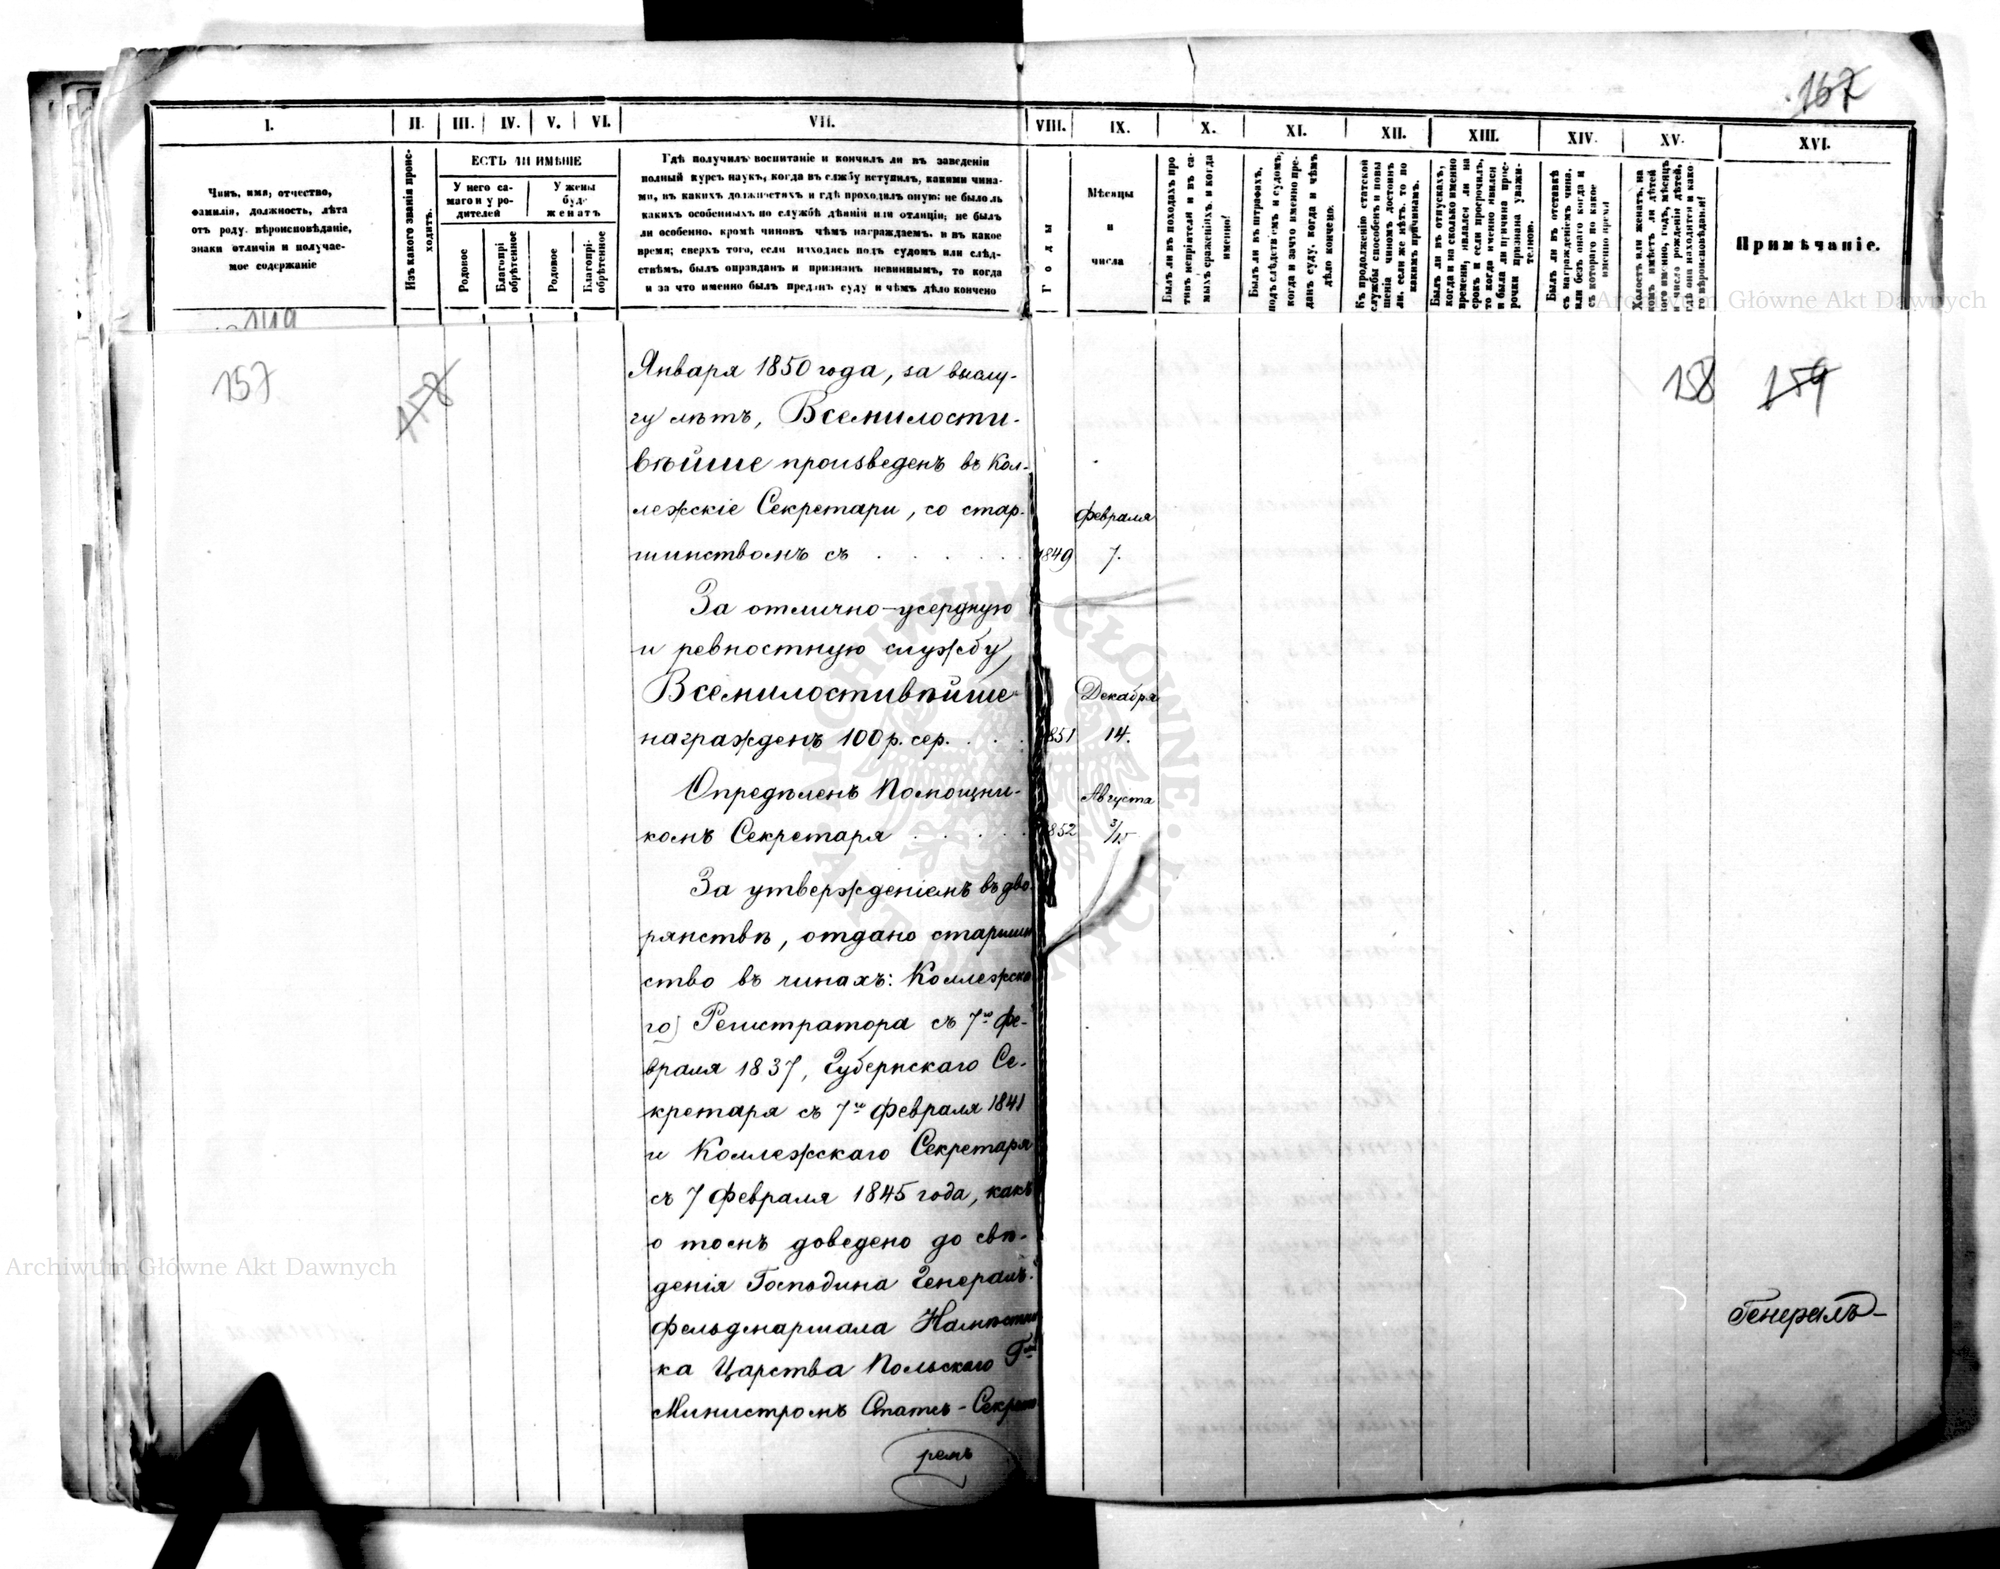 167
I.
II.
III.
IV.
V.
VI.
VII.
VIII.
IX.
X.
XI.
XII.
XIII.
XIV.
XV.
XVI.
Чинъ, имя, отчество,
фамилія, должность, лѣта
отъ роду, вѣроисповѣданіе,
знаки отличія и получае-
мое содержаніе
Изъ какого званія проис-
ходитъ.
ЕСТЬ ЛИ ИМѢНІЕ
У него са-
маго и у ро-
дителей
У жены
буде
женатъ
Родовое
Благопрі-
обрѣтенное
Родовое
Благопрі-
обрѣтенное
Гдѣ получилъ воспитаніе и кончилъ ли въ заведеніи
полный курсъ наукъ, когда въ службу вступилъ, какими чина-
ми, въ какихъ должностяхъ и гдѣ проходилъ оную; не было ль
какихъ особенныхъ по службѣ дѣяній или отличій; не былъ
ли особенно, кромѣ чиновъ чѣмъ награждаемъ, и въ какое
время; сверхъ того, если находясь подъ судомъ или слѣд-
ствіемъ, былъ оправданъ и признанъ невиннымъ, то когда
и за что именно былъ преданъ суду и чѣмъ дѣло кончено
Годы
Мѣсяцы
и
числа
Былъ ли въ походахъ про
тивъ непріятеля и въ са-
мыхъ сраженіяхъ и когда
именно?
Былъ ли въ штрафахъ,
подъ слѣдствіемъ и судомъ,
когда и за что именно пре-
данъ суду, когда и чѣмъ
дѣло кончено.
Къ продолженію статской
службы способенъ и повы
шенія чиномъ достоинъ
ли, если же нѣтъ, то по
какимъ причинамъ.
Былъ ли въ отпускахъ,
когда и на сколько именно
времени; явился ли на
срокъ и если просрочилъ,
то когда именно явился
и была ли причина прос-
рочки признана уважи-
тельною.
Былъ ли въ отставкѣ
съ награжденіемъ чина,
или безъ онаго когда и
съ котораго по какое
именно время
Холостъ или женатъ, на
комъ, имѣетъ ли дѣтей
кого именно, годъ, мѣсяцъ
и число рожденія дѣтей,
гдѣ они находятся и како
го вѣроисповѣданія?
Примѣчаніе.
Archiwum Główne Akt Dawnych
157
158
158
159
Января 1850 года, за выслу-
гу лѣтъ, Всемилости-
вѣйше произведенъ въ Кол-
лежскіе Секретари, со стар-
шинствомъ съ . . . . 1849 Февраля 7.
За отлично-усердную
и ревностную службу,
Всемилостивѣйше
награжденъ 100 р. сер. . . . 1851 Декабря 14.
Опредѣленъ Помощни-
комъ Секретаря . . . . 1852 Августа 3/15
За утвержденіемъ въ дво-
рянствѣ, отдано старшин
ство въ чинахъ: Коллежска
го Регистратора съ 7го Фе-
враля 1837, Губернскаго Се-
кретаря съ 7го Февраля 1841
и Коллежскаго Секретаря
съ 7 Февраля 1845 года, какъ
о томъ доведено до свѣ-
денія Господина Генералъ-
Фельдмаршала Намѣстни
ка Царства Польскаго Гмъ
Министромъ Статсъ-Секрета
ремъ
Генералъ-
Archiwum Główne Akt Dawnych
ARCHIWUM GŁÓWNE AKT DAWNYCH